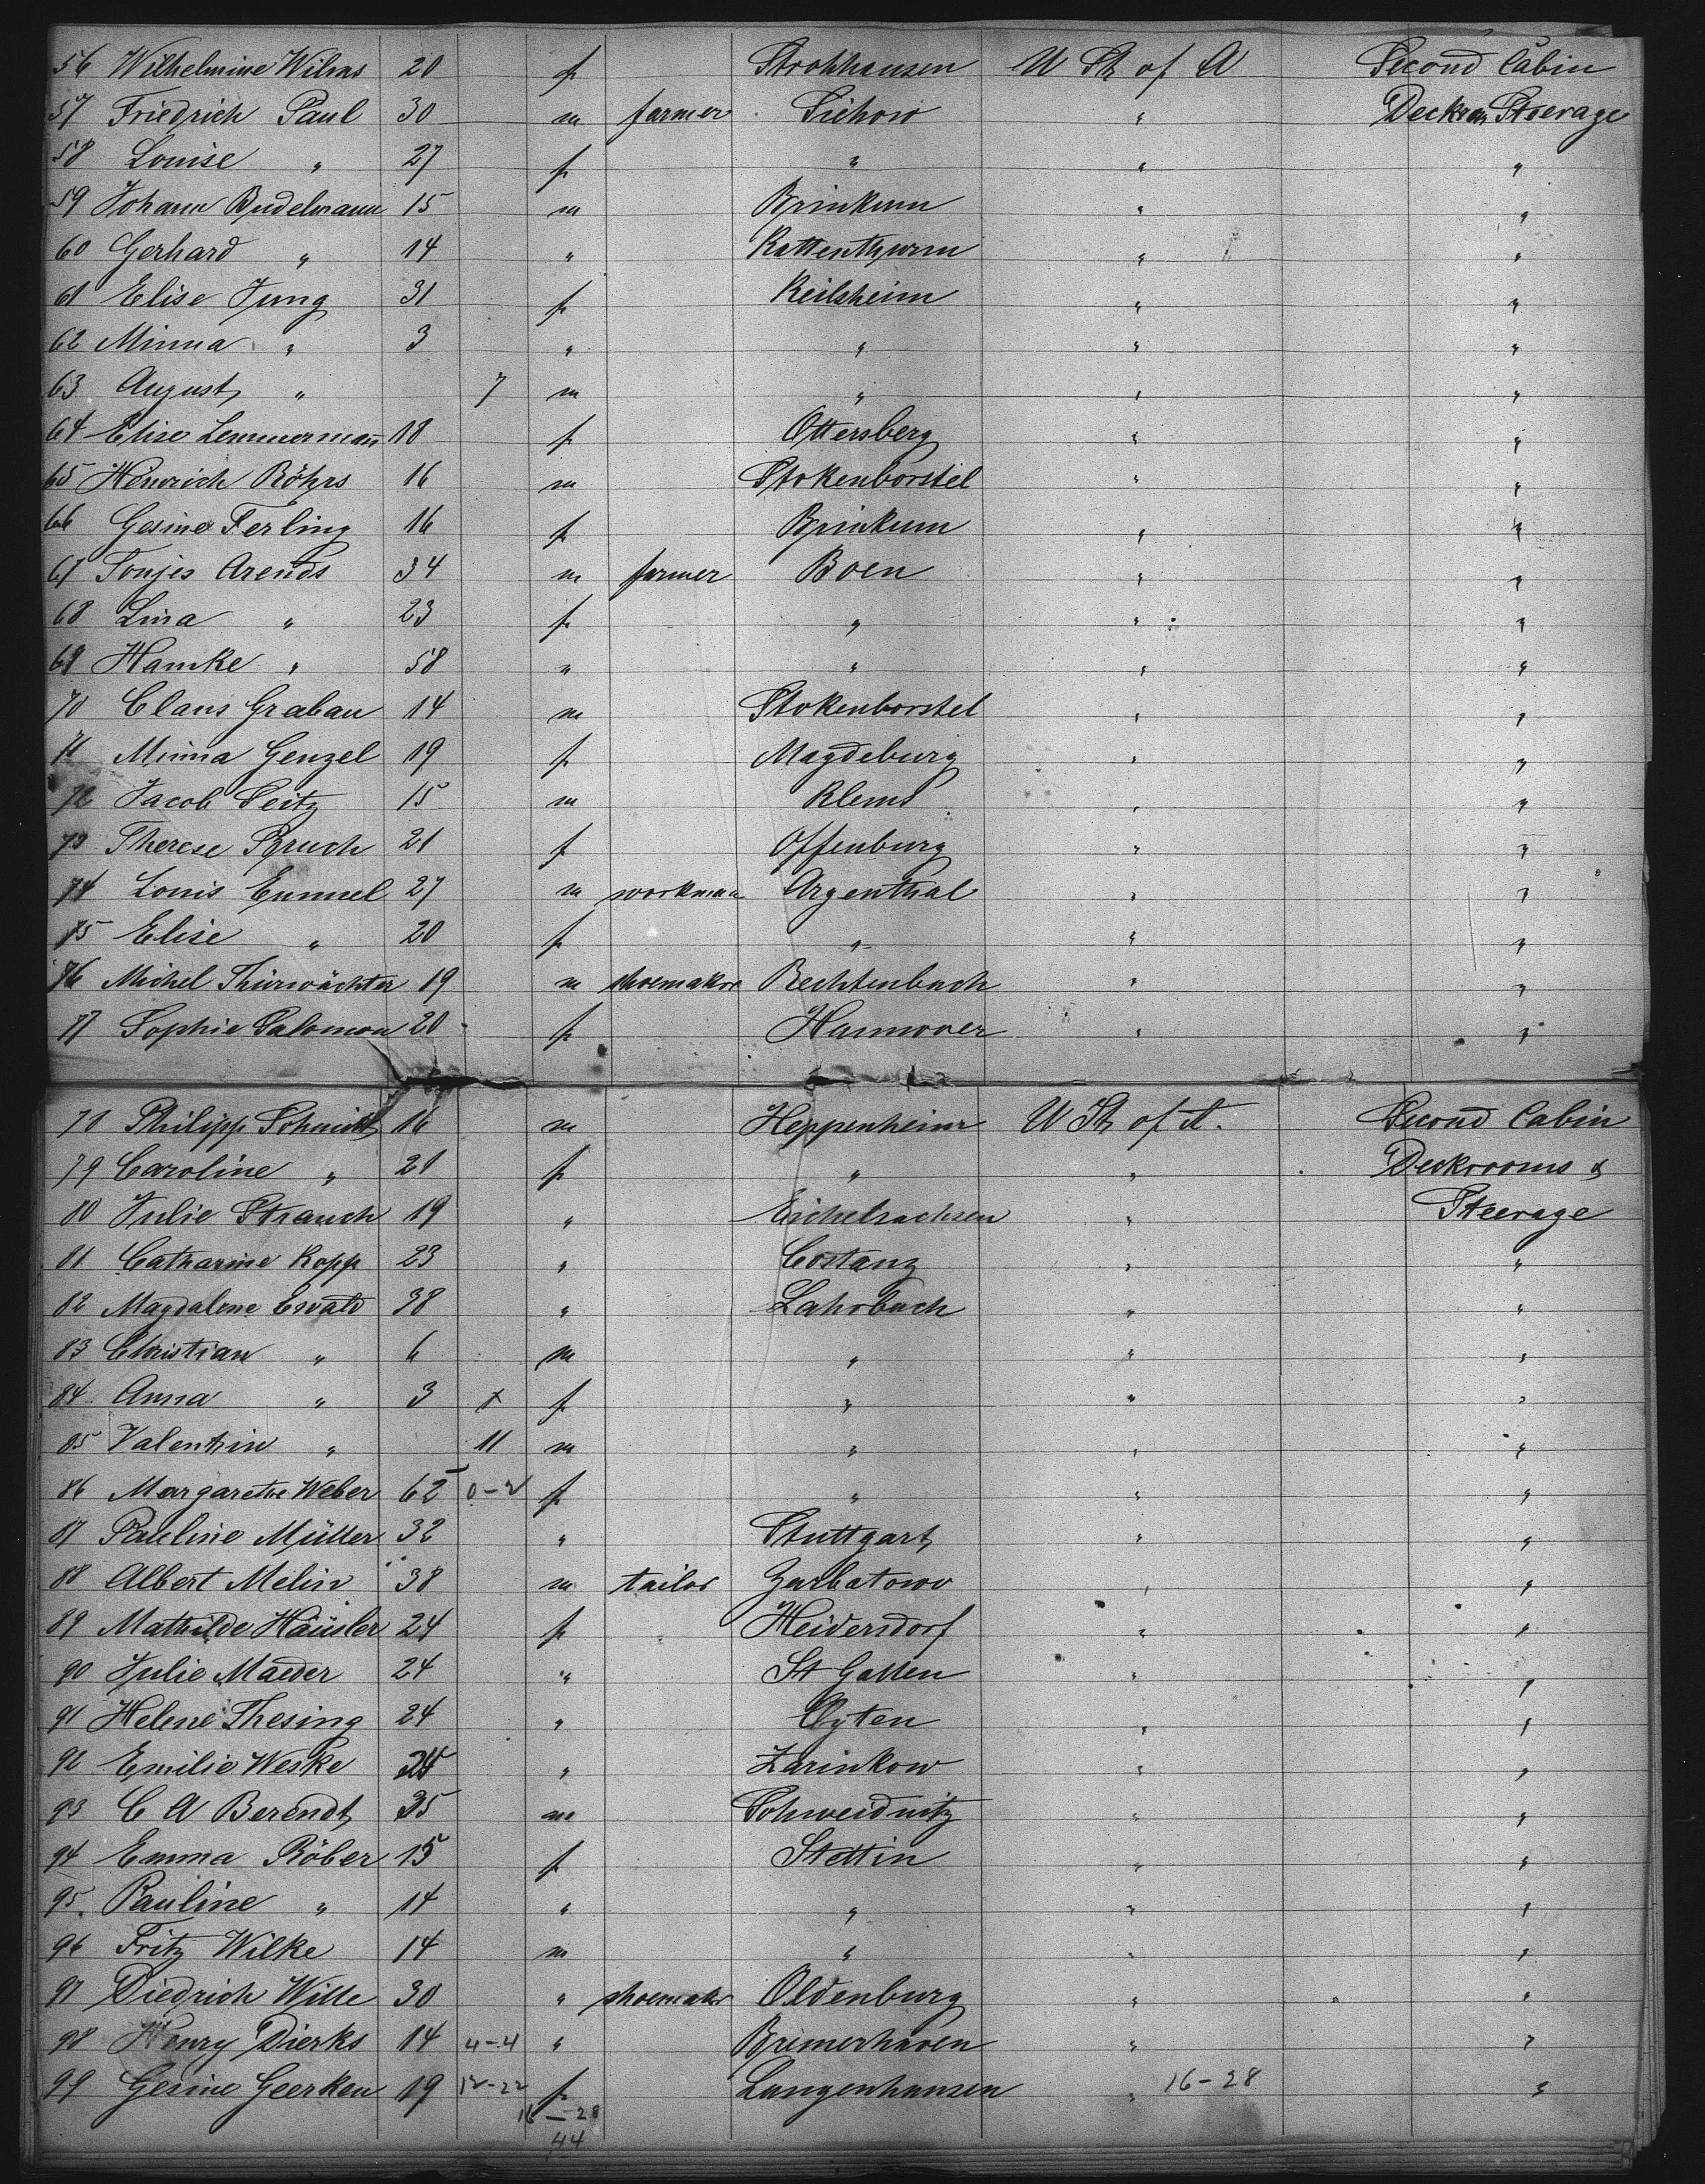 56 Wilhelmine Wilms 20 f Strohhausen U St of A Second Cabin
57 Friedrich Paul 30 m farmer Sichow " Deckrm Steerage
58 Louise " 27 f " " "
59 Johann Budelmann 15 m Brinkum " "
60 Gerhard " 14 " Kattenthurm " "
61 Elise Jung 31 f Keilsheim " "
62 Minna " 3 " " " "
63 August " 7 m " " "
64 Elise Lemmermann 18 f Ottersberg " "
65 Heinrich Röhrs 16 m Stokenborstel " "
66 Gesine Ferling 16 f Brinkum " "
67 Tonjes Arends 34 m farmer Boen " "
68 Lina " 23 f " " "
69 Hamke " 58 " " " "
70 Claus Grabau 14 m Stokenborstel " "
71 Minna Genzel 19 f Magdeburg " "
72 Jacob Seitz 15 m Klems " "
73 Therese Bruch 21 f Offenburg " "
74 Louis Emmel 27 m workman Argenthal " "
75 Elise " 20 f " " "
76 Michel Thürwächter 19 m shoemaker Rechtenbach " "
77 Sophie Salomon 20 f Hannover " "
78 Philipp Schmidt 16 m Heppenheim U St of A. Second Cabin
79 Caroline " 21 f " " Deckrooms &
80 Julie Strauch 19 " Eichelsachsen " Steerage
81 Catharine Kopp 23 " Costanz " "
82 Magdalene Ewald 38 " Lahrbach " "
83 Christian " 6 m " " "
84 Anna " 3 f " " "
85 Valentin " 11 m " " "
86 Margarethe Weber 62 0-2 f " " "
87 Pauline Müller 32 " Stuttgart " "
88 Albert Melin 38 m tailor Zarbatowo " "
89 Mathilde Häusler 24 f Heidersdorf " "
90 Julie Maeder 24 " St Gallen " "
91 Helene Thesing 24 " Oyten " "
92 Emilie Weske 24 " Zarinkow " "
93 C A Berendt 35 m Schweidnitz " "
94 Emma Röber 15 f Stettin " "
95 Pauline " 14 " " " "
96 Fritz Wilke 14 m " " "
97 Diedrich Wille 30 " shoemaker Oldenburg " "
98 Henry Dierks 14 4-4 " Bremerhaven " "
99 Gesine Geerken 19 12-22 f Langenhausen " 16-28 "
16-28
44